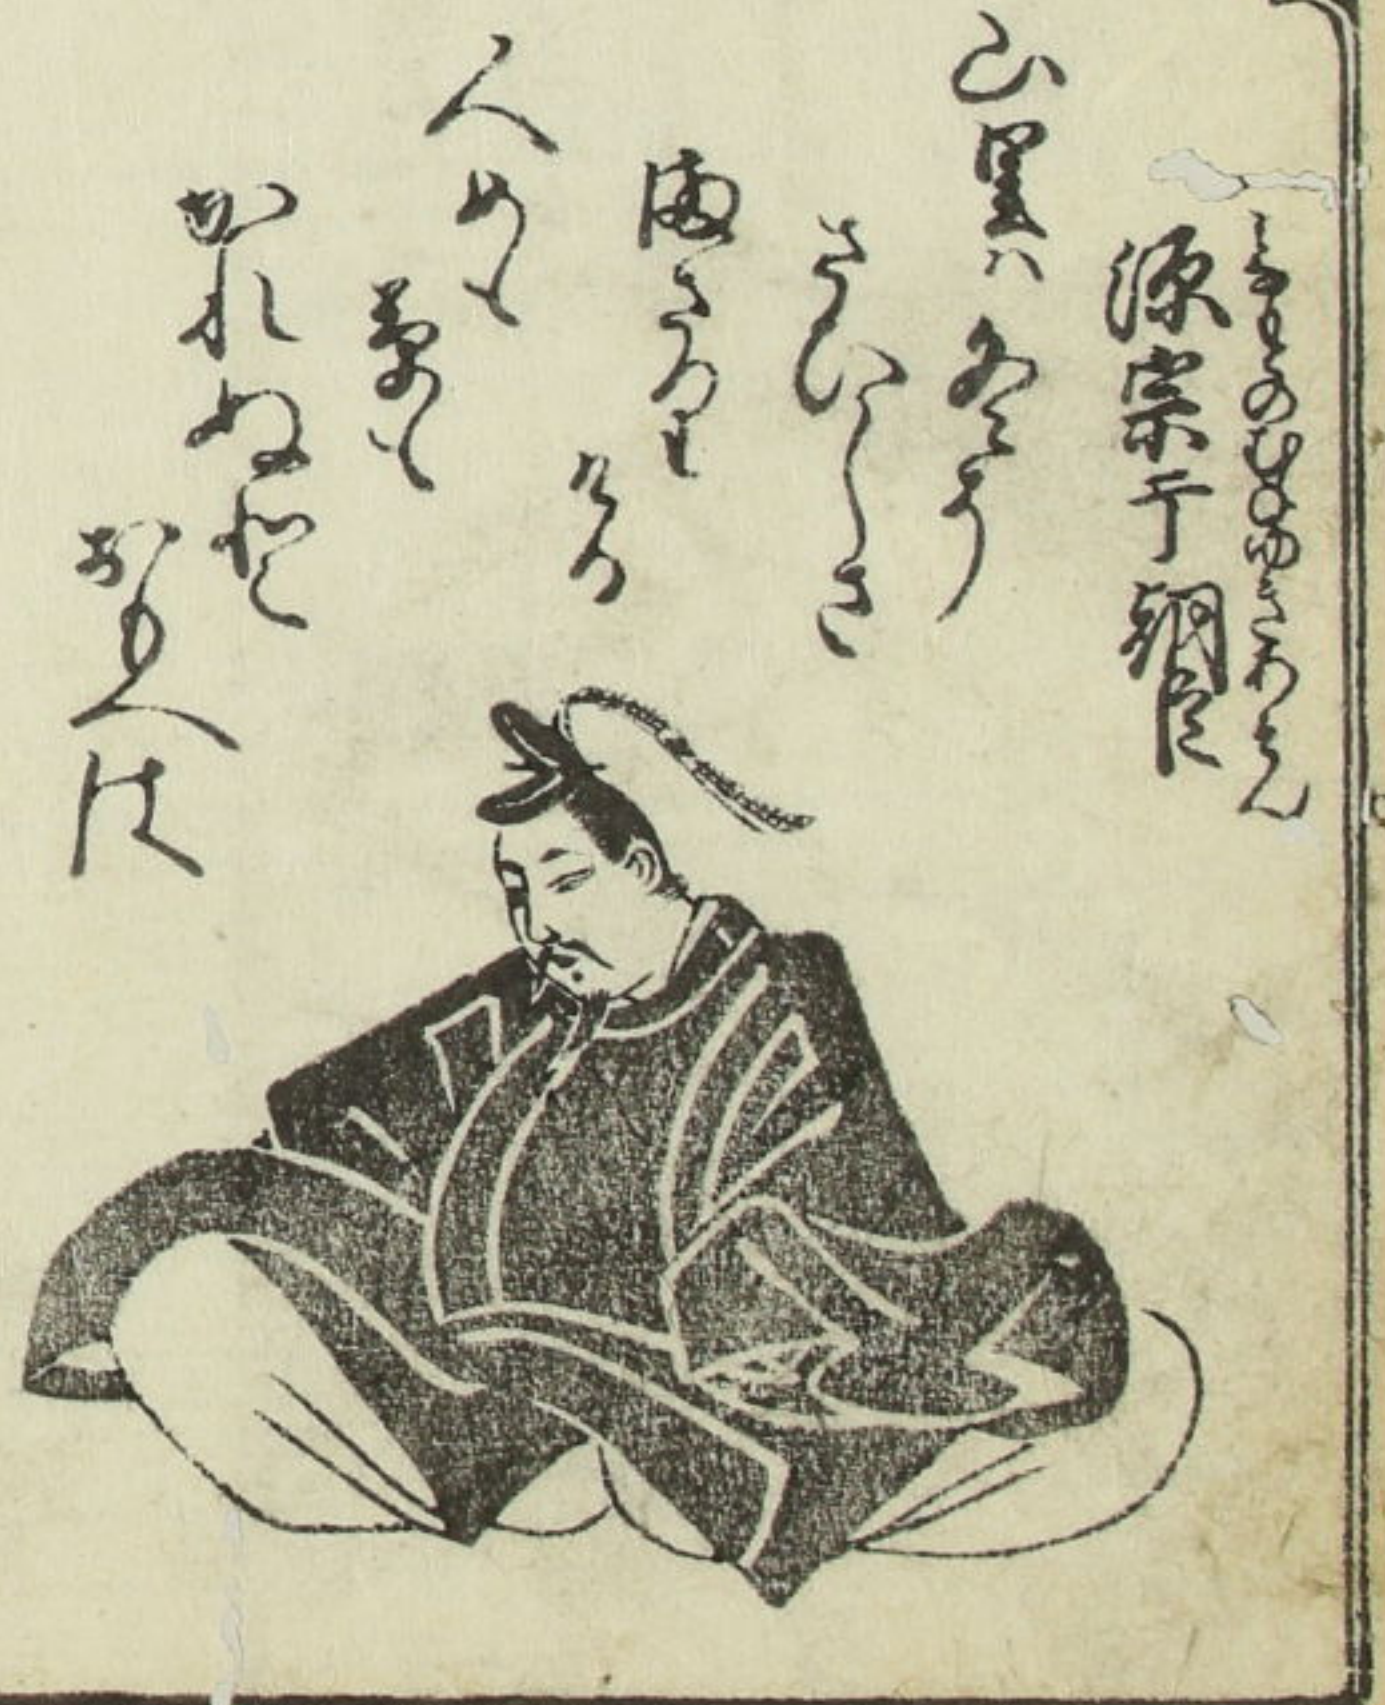 みなもとのむねゆきあそん
源宗于朝臣
山里ハ冬そ
さひしさ
まさり
ける
人めも
草も
かれぬと
おもへは